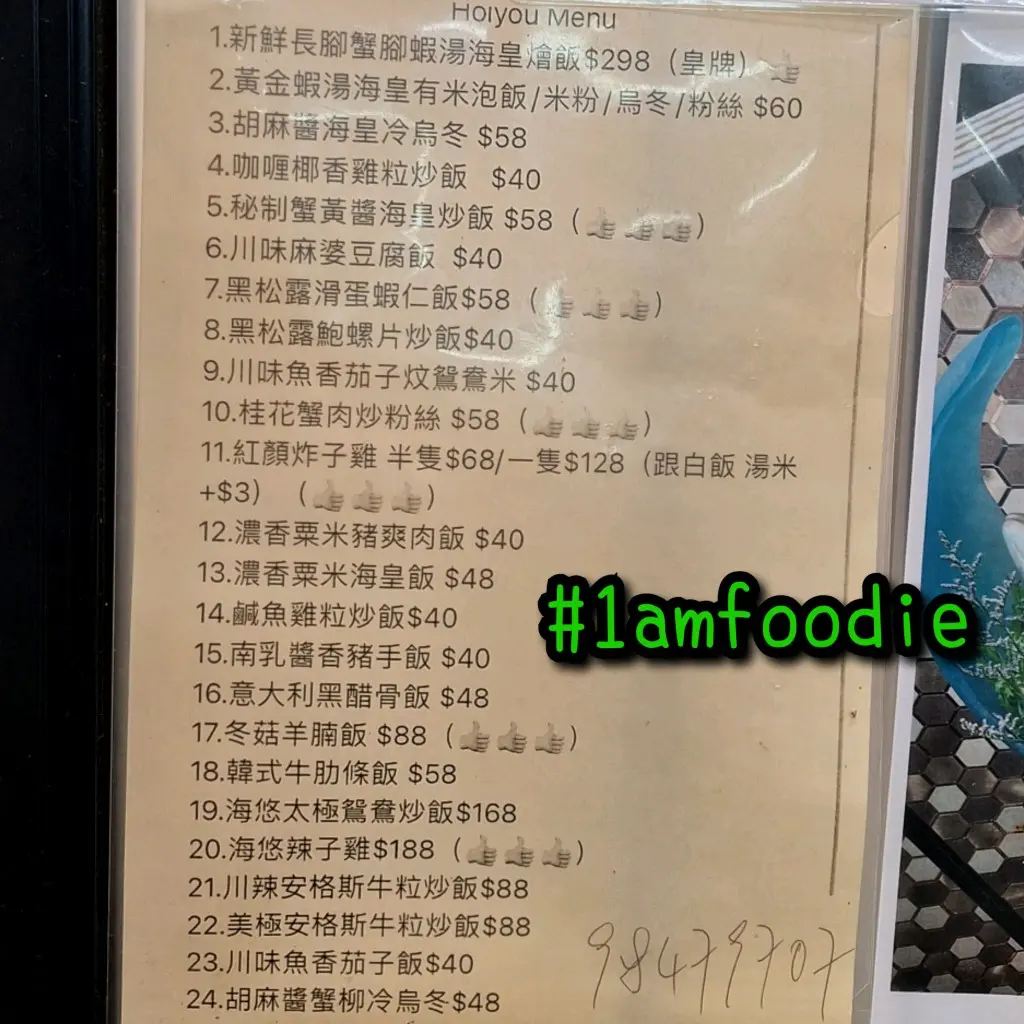 Hoiyou Menu
1.新鮮長腳蟹腳蝦湯海皇燴飯$298（皇牌）👍
2.黃金蝦湯海皇有米泡飯/米粉/烏冬/粉絲 $60
3.胡麻醬海皇冷烏冬 $58
4.咖喱椰香雞粒炒飯 $40
5.秘制蟹黃醬海皇炒飯 $58（👍👍👍）
6.川味麻婆豆腐飯 $40
7.黑松露滑蛋蝦仁飯$58（👍👍👍）
8.黑松露鮑螺片炒飯$40
9.川味魚香茄子炆鴛鴦米 $40
10.桂花蟹肉炒粉絲 $58（👍👍👍）
11.紅顏炸子雞 半隻$68/一隻$128（跟白飯 湯米
+$3）（👍👍👍）
12.濃香粟米豬爽肉飯 $40
13.濃香粟米海皇飯 $48
14.鹹魚雞粒炒飯$40
15.南乳醬香豬手飯 $40
16.意大利黑醋骨飯 $48
17.冬菇羊腩飯 $88（👍👍👍）
18.韓式牛肋條飯 $58
19.海悠太極鴛鴦炒飯$168
20.海悠辣子雞$188（👍👍👍）
21.川辣安格斯牛粒炒飯$88
22.美極安格斯牛粒炒飯$88
23.川味魚香茄子飯$40
24.胡麻醬蟹柳冷烏冬$48
98479707
#1amfoodie